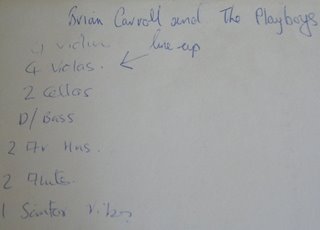 Brian Carroll and The Playboys
line up
4 violas.
2 Cellos
D/Bass
2 Fr Hns.
2 Flutes
1